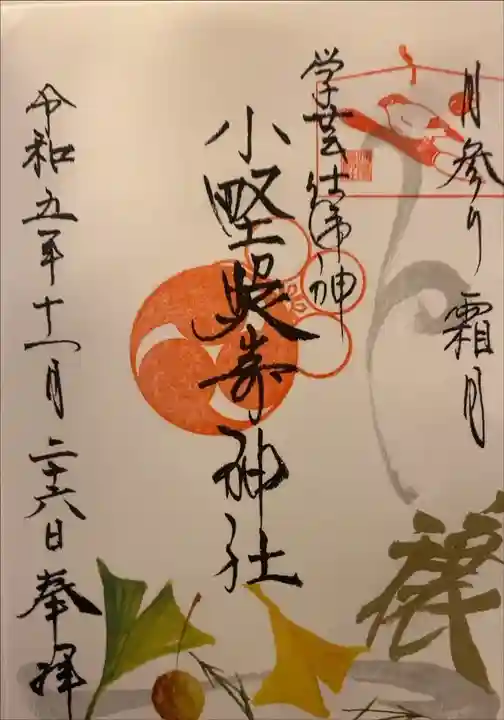 月参り 霜月
学芸仕神
小野照崎神社
令和五年十一月二十六日 奉拝